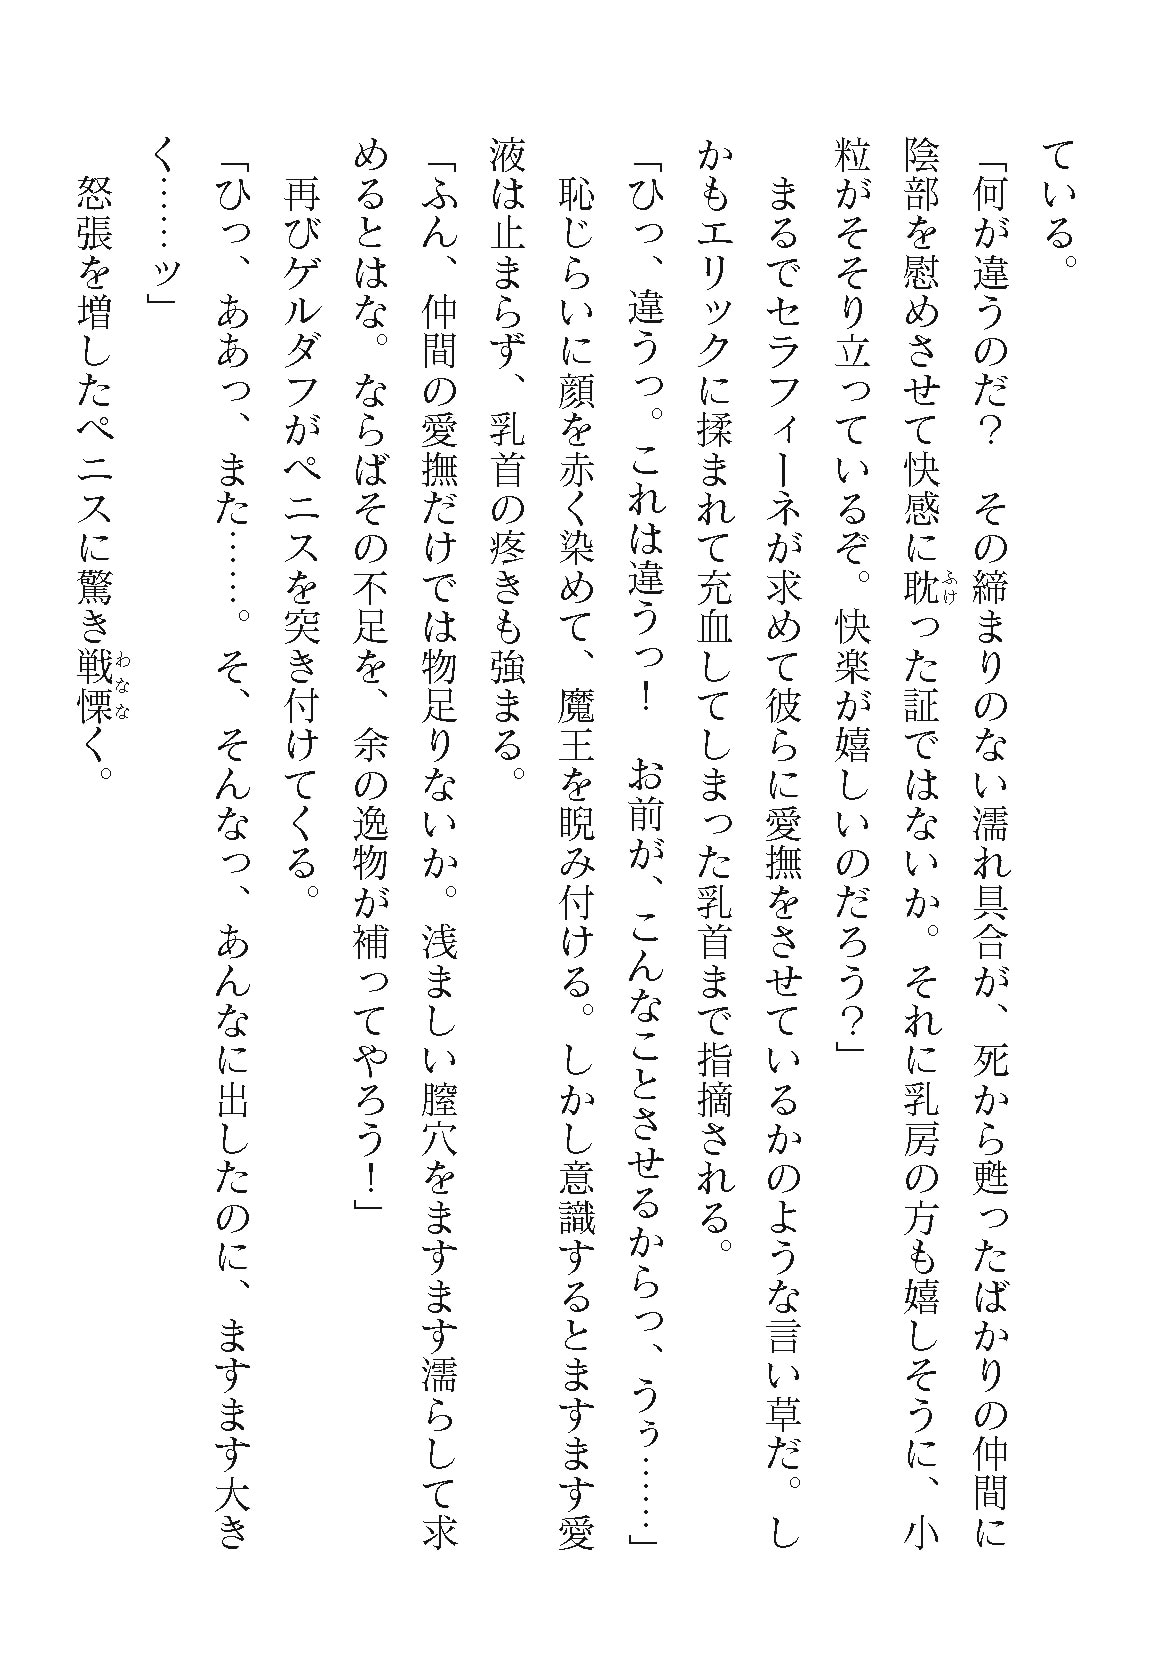 ている。
「何が違うのだ？　その締まりのない濡れ具合が、死から甦ったばかりの仲間に
陰部を慰めさせて快感に耽った証ではないか。それに乳房の方も嬉しそうに、小
粒がそそり立っているぞ。快楽が嬉しいのだろう？」
　まるでセラフィーネが求めて彼らに愛撫をさせているかのような言い草だ。し
かもエリックに揉まれて充血してしまった乳首まで指摘される。
「ひっ、違うっ。これは違うっ！　お前が、こんなことさせるからっ、うぅ……」
　恥じらいに顔を赤く染めて、魔王を睨み付ける。しかし意識するとますます愛
液は止まらず、乳首の疼きも強まる。
「ふん、仲間の愛撫だけでは物足りないか。浅ましい膣穴をますます濡らして求
めるとはな。ならばその不足を、余の逸物が補ってやろう！」
　再びゲルダフがペニスを突き付けてくる。
「ひっ、ああっ、また……。そ、そんなっ、あんなに出したのに、ますます大き
く……ッ」
　怒張を増したペニスに驚き戦慄く。
ふけ
わなな